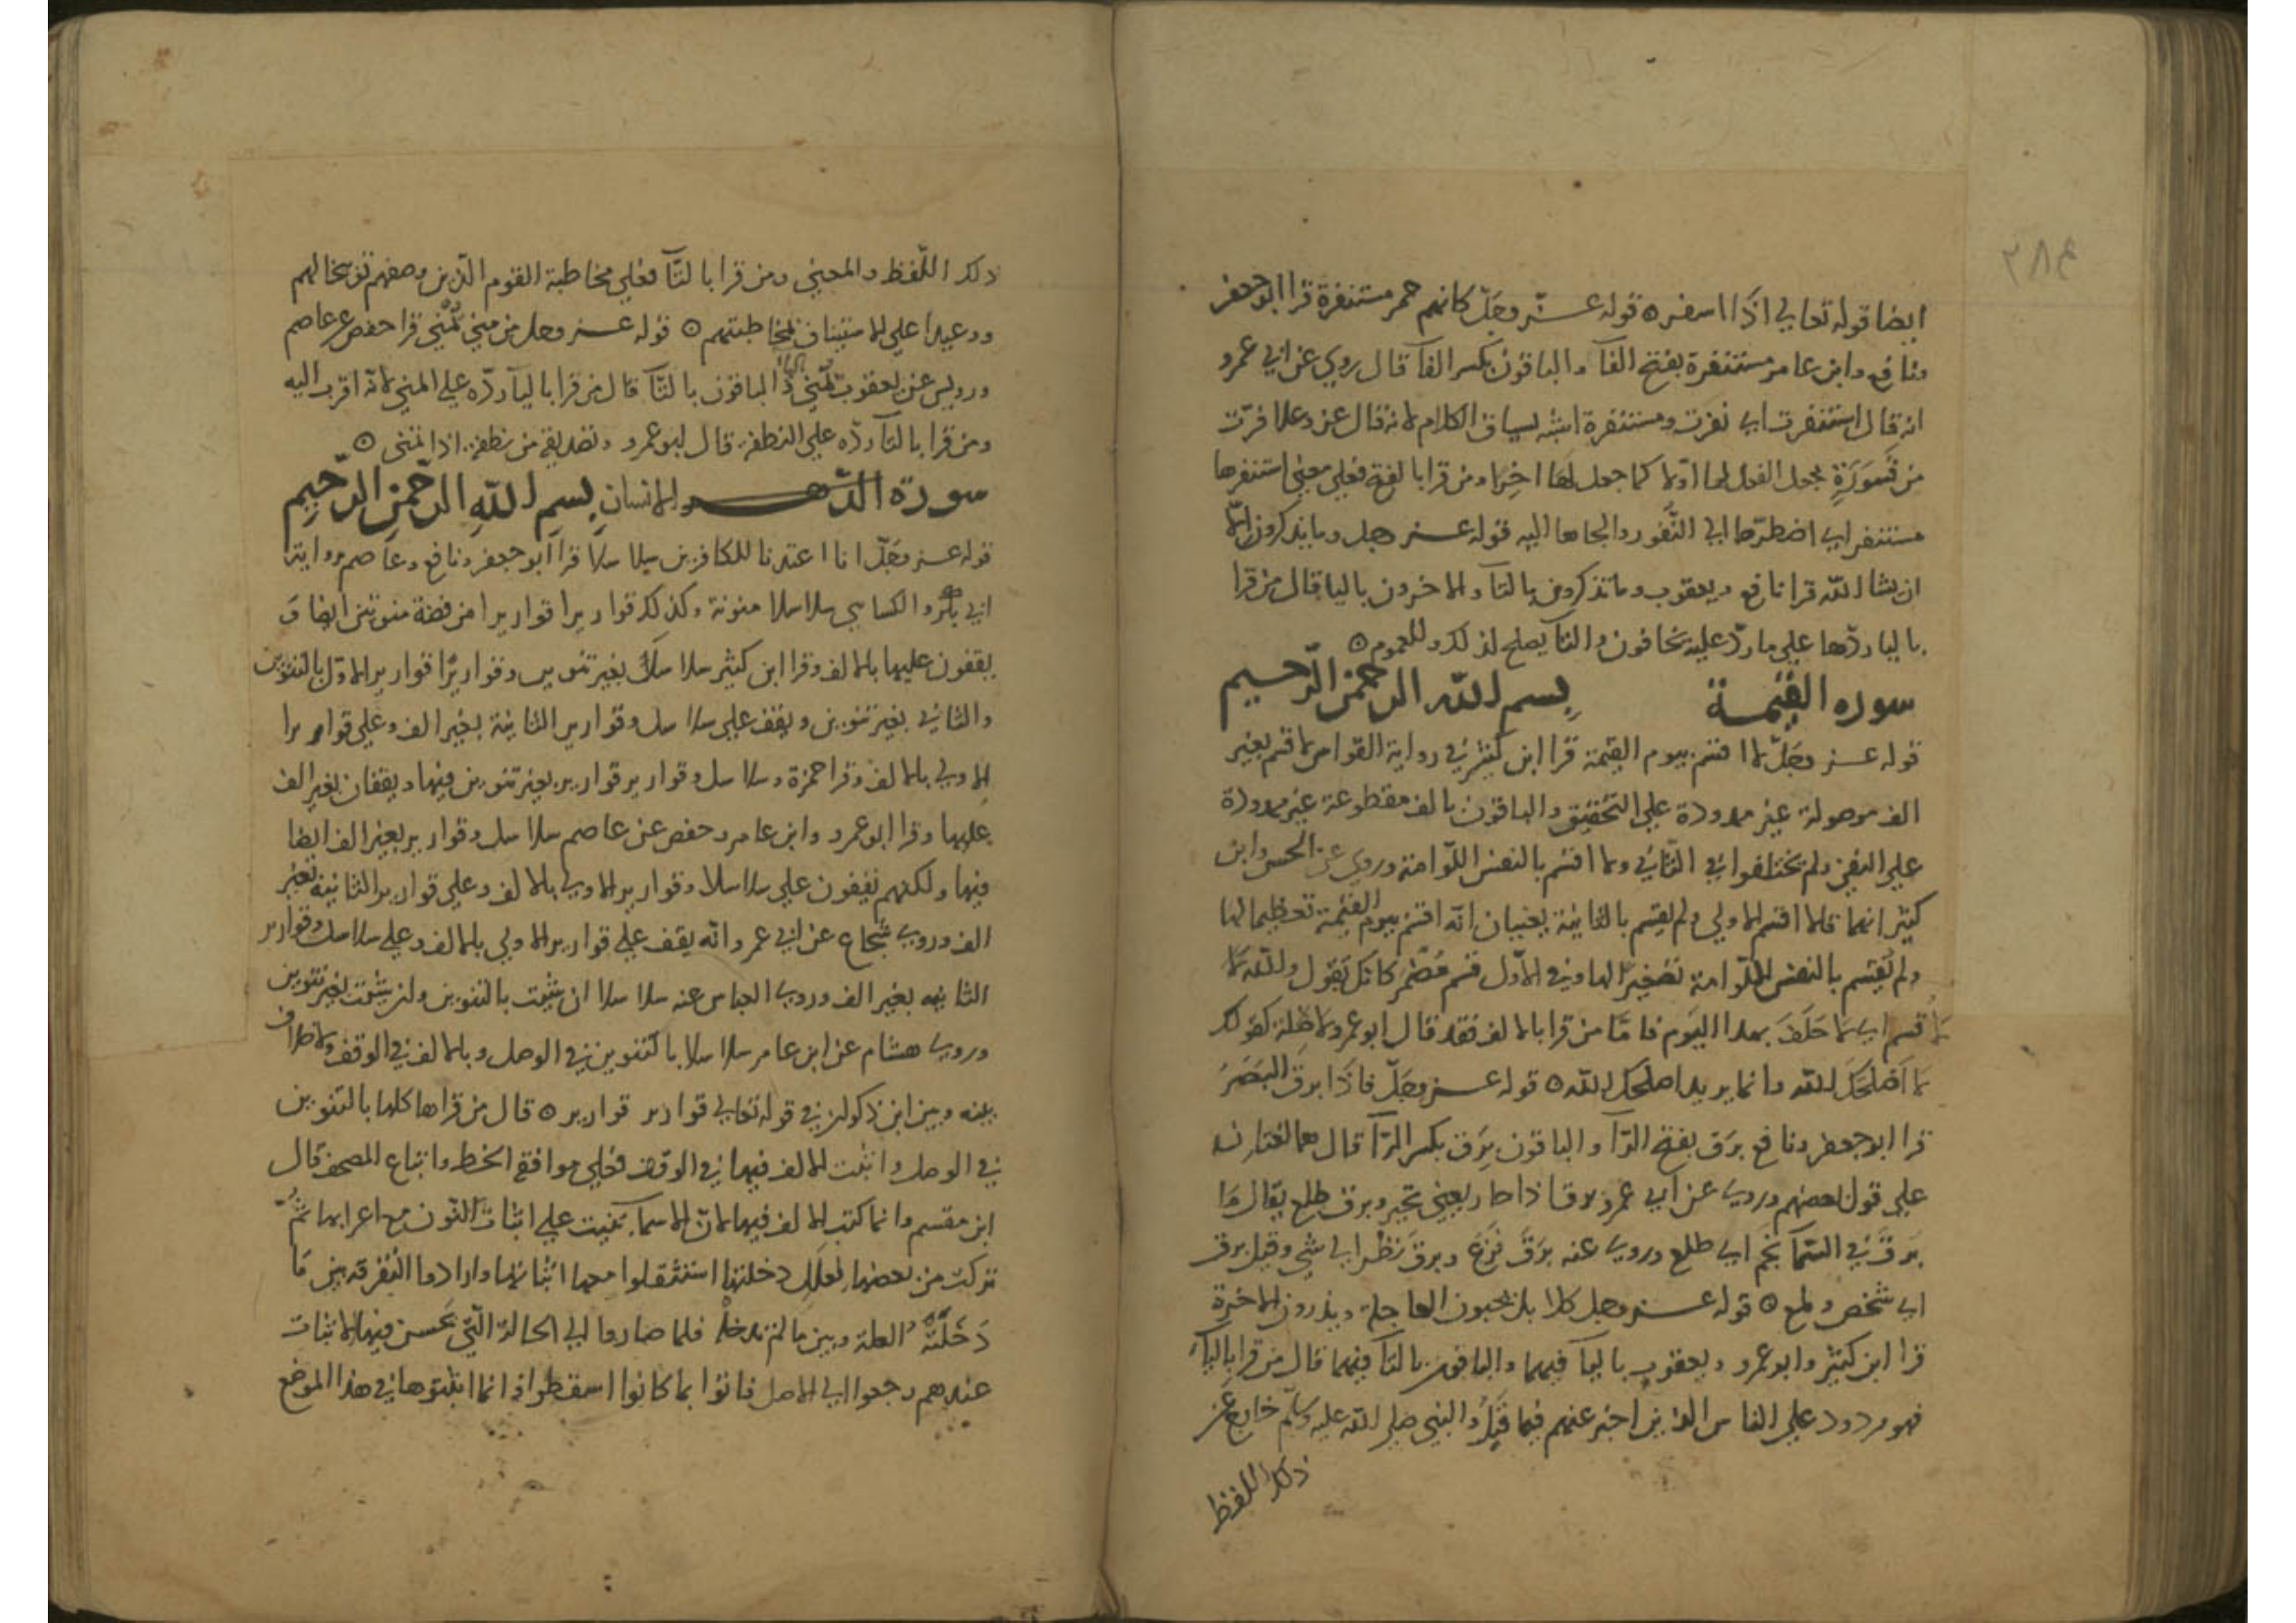 ٢٨٤
ايضا قوله تعالي اذا اسفر ۝ قوله عز وجل كانهم حمر مستنفرة قرا ابو جعفر
ونافع وابن عامر مستنفرة بفتح الفآ والباقون بكسر الفآ قال روي عن ابي عمرو
انه قال استنفرت اي نفرت ومستنفرة اشبه لسياق الكلام لانه قال عز وعلا فرت
من قسورة فجعل الفعل لها اولا كما جعل لها اخرا ومن قرا بالفتح فعلي معني استنفرها
مستنفر اي اضطرها الي النفور والجاها اليه قوله عز وجل وما يذكرون الا
ان يشا الله قرا نافع ويعقوب وما تذكرون بالتآ والاخرون باليا قال من قرا
باليا ردها علي ما رد عليه يخافون والتآ يصلح لذلك وللعموم ۝
سوره القيمة بسم الله الرحمن الرحيم
قوله عز وجل لا اقسم بيوم القيمة قرا ابن كثير في رواية القواس لاقسم بغير
الف موصولة غير ممدودة علي التحقيق والباقون بالف مقطوعة غير ممدودة
علي النفي ولم يختلفوا في الثاني ولا اقسم بالنفس اللوامة وروي عن الحسن وابن
كثير انهما قالا اقسم الاولي ولم يقسم بالثانية يعنيان انه اقسم بيوم القيمة تعظيما لها
ولم يقسم بالنفس اللوامة تصغيرا لها وفي الاول قسم مضمر كانك تقول والله لا
لاقسم اي لاحلف بهذا اليوم فاما من قرا بالالف فقد قال ابو عمرو لا صلة كقولك
لا اصلحك الله وانما يريد اصلحك الله ۝ قوله عز وجل فاذا برق البصر
قرا ابو جعفر ونافع برق بفتح الرآ والباقون برق بكسر الرآ قال هما لغتان
علي قول بعضهم وروي عن ابي عمرو برق اذا حار يعني تحير وبرق طلع يقال ما
برق في السمآ نجم اي طلع وروي عنه برق فزع وبرق نظر الي شي وقيل برق
اي شخص ولمع ۝ قوله عز وجل كلا بل يحبون العاجلة ويذرون الاخرة
قرا ابن كثير وابو عمرو ويعقوب باليآ فيهما والباقون بالتآ فيهما قال من قرا باليآ
فهو مردود علي الناس الذين اخبر عنهم فيما قبل والنبي صلي الله عليه وسلم خارج عن
ذلك اللفظ
ذلك اللفظ والمعني ومن قرا بالتآ فعلي مخاطبة القوم الذين وصفهم توبيخا لهم
ووعيدا علي الاستيناف لمخاطبتهم ۝ قوله عز وجل من مني يمني قرا حفص عن عاصم
ورويس عن يعقوب يمني باليآ الباقون بالتآ قال من قرا باليآ رده علي المني لانه اقرب اليه
ومن قرا بالتآ رده علي النطفة قال ابو عمرو وتصديقه من نطفة اذا تمني ۝
سورة الدهر والانسان بسم الله الرحمن الرحيم
قوله عز وجل انا اعتدنا للكافرين سلاسلا قرا ابو جعفر ونافع وعاصم برواية
ابي بكر والكسايي سلاسلا منونة وكذلك قواريرا قواريرا من فضة منونتين ايضا و
يقفون عليها بالالف وقرا ابن كثير سلاسل بغير تنوين وقواريرا قوارير الاول بالتنوين
والثاني بغير تنوين ويقف علي سلاسل وقوارير الثانية بغير الف وعلي قواريرا
الاولي بالالف وقرا حمزة وسلاسل وقوارير قوارير بغير تنوين فيها ويقفان بغير الف
عليها وقرا ابو عمرو وابن عامر وحفص عن عاصم سلاسل وقوارير بغير الف ايضا
فيها ولكنهم يقفون علي سلاسلا وقوارير الاولي بالالف وعلي قوارير الثانية بغير
الف وروي شجاع عن ابي عمرو انه يقف علي قوارير الاولي بالالف وعلي سلاسل وقوارير
الثانيه بغير الف وروي العباس عنه سلاسلا ان شيت بالتنوين وان شيت بغير تنوين
وروي هشام عن ابن عامر سلاسلا بالتنوين في الوصل وبالالف في الوقف ولا خلاف
بينه وبين ابن ذكوان في قوله تعالي قوارير قوارير ۝ قال من قراها كلها بالتنوين
في الوصل واثبت الالف فيها في الوقف فعلي موافقة الخط واتباع المصحف قال
ابن مقسم وانما كتب الالف فيها لان الاسمآ بنيت علي اثبات النون مع اعرابها ثم
تركت من بعضها لعلل دخلتها استثقلوا معها اثباتها وارادوا التفرقه بين ما
دخلته العلة وبين ما لم تدخله فلما صاروا الي الحالة التي يحسن فيها الاثبات
عندهم رجعوا الي الاصل فاتوا بما كانوا اسقطوا وانما اثبتوها في هذا الموضع